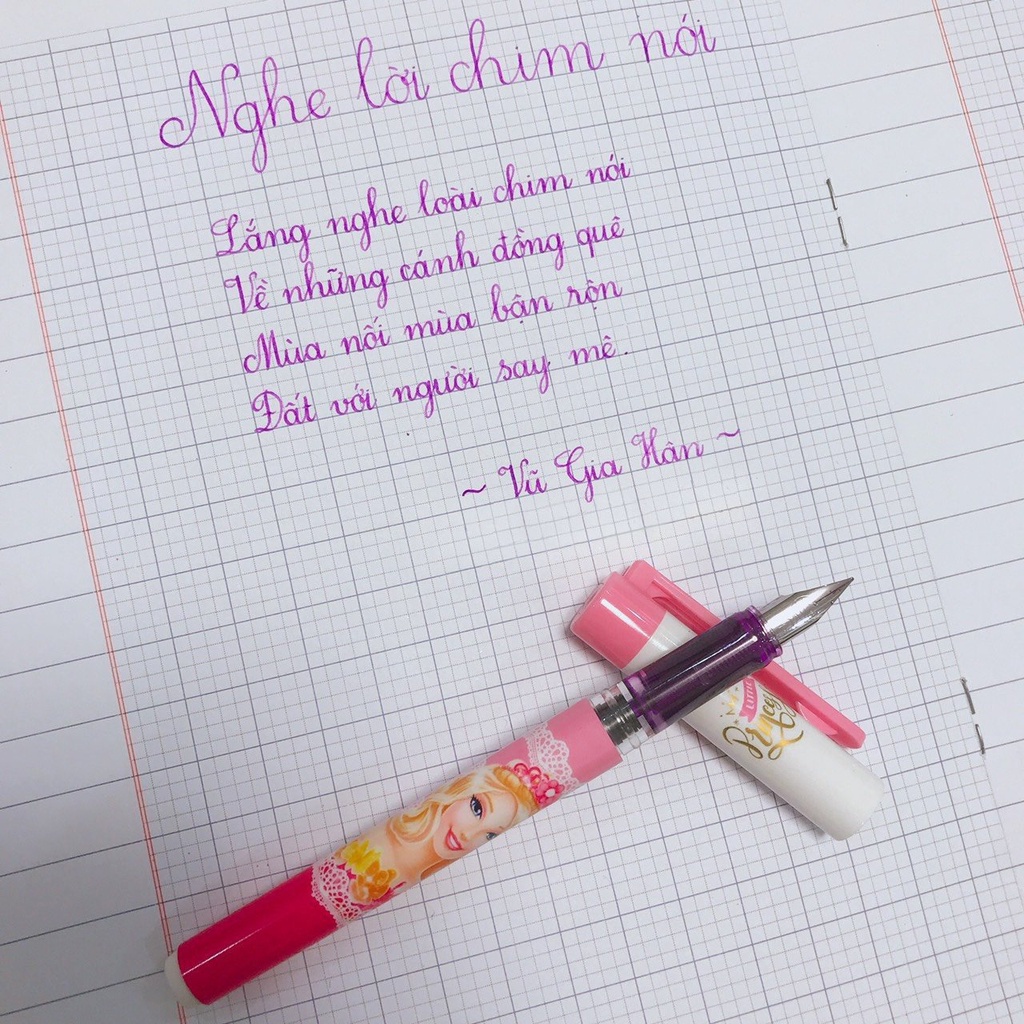 Nghe lời chim nói
Lắng nghe loài chim nói
Về những cánh đồng quê
Mùa nối mùa bận rộn
Đất với người say mê.
~ Vũ Gia Hân ~
LITTLE